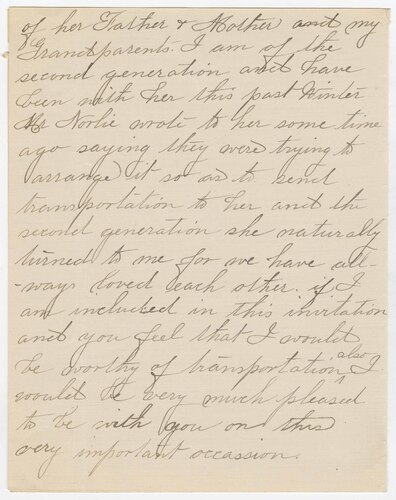 of her Father & Mother and my
Grandparents. I am of the
second generation and have
been with her this past Winter
Mr Norlie wrote to her some time
ago saying they were trying to
arrange it so as to send
transportation to her and the
second generation she naturally
turned to me for we have all-
-ways loved each other. if I
am included in this invitation
and you feel that I would
be worthy of transportation also I
would be very much pleased
to be with you on this
very important occassion.